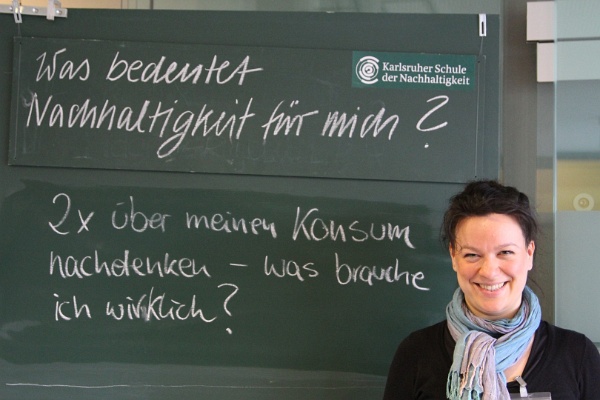 Was bedeutet
Nachhaltigkeit für mich?
Karlsruher Schule
der Nachhaltigkeit
2x über meinen Konsum
nachdenken – was brauche
ich wirklich?